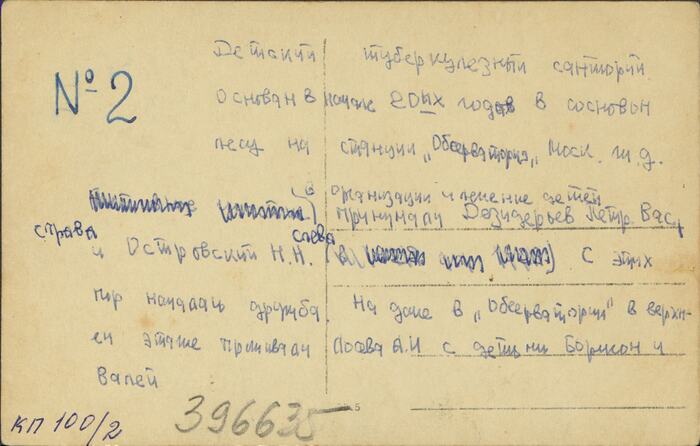 №2
Детский туберкулезный санторий
Основан в начале 20ых годов в сосновом
лесу на станции „Обсерватория„ Моск. ж.д.
В организации и лечение детей
принимали Дезидерьев Петр Вас.
справа и Островский Н.Н. слева С этих
пор началась дружба. На даче в „Обсерватории" в верхн-
ем этаже проживал Лосева А.И с детьми Борисом и
Валей
КП 100/2
396635
5